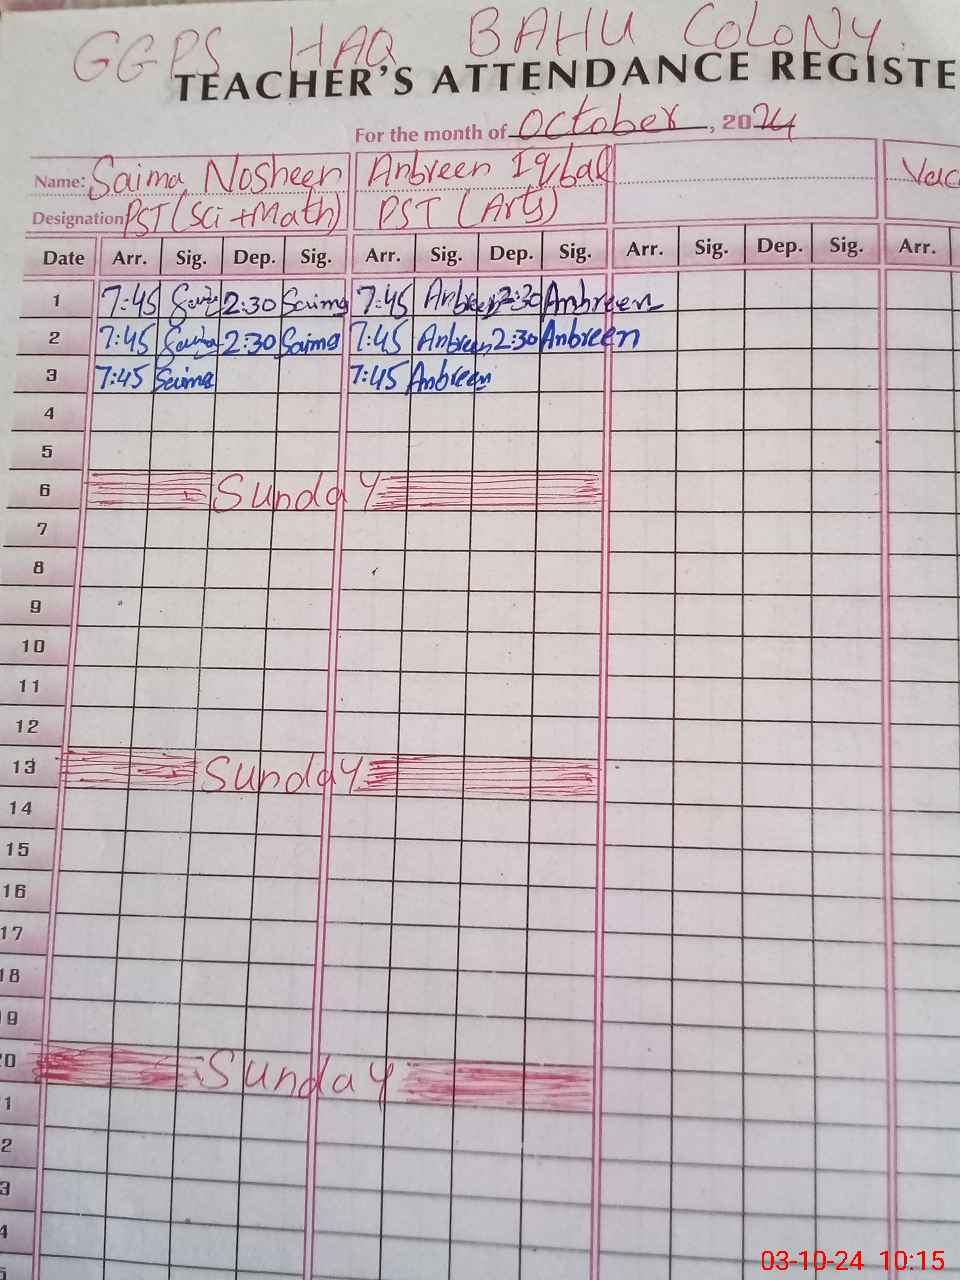 GGPS HAQ BAHU COLONY.
TEACHER'S ATTENDANCE REGISTE
For the month of October, 2024
Name: Saima Nosheen Anbreen Iqbal Vac
Designation PST (Sci + Math) PST (Arts)
Date Arr. Sig. Dep. Sig. Arr. Sig. Dep. Sig. Arr. Sig. Dep. Sig. Arr.
1 7:45 Saima 2:30 Saima 7:45 Anbreen 2:30 Ambreen
2 7:45 Saima 2:30 Saima 7:45 Anbreen 2:30 Anbreen
3 7:45 Saima 7:45 Anbreen
4
5
6 Sunday
7
8
9
10
11
12
13 Sunday
14
15
16
17
18
9
0 Sunday
1
2
3
4
03-10-24 10:15